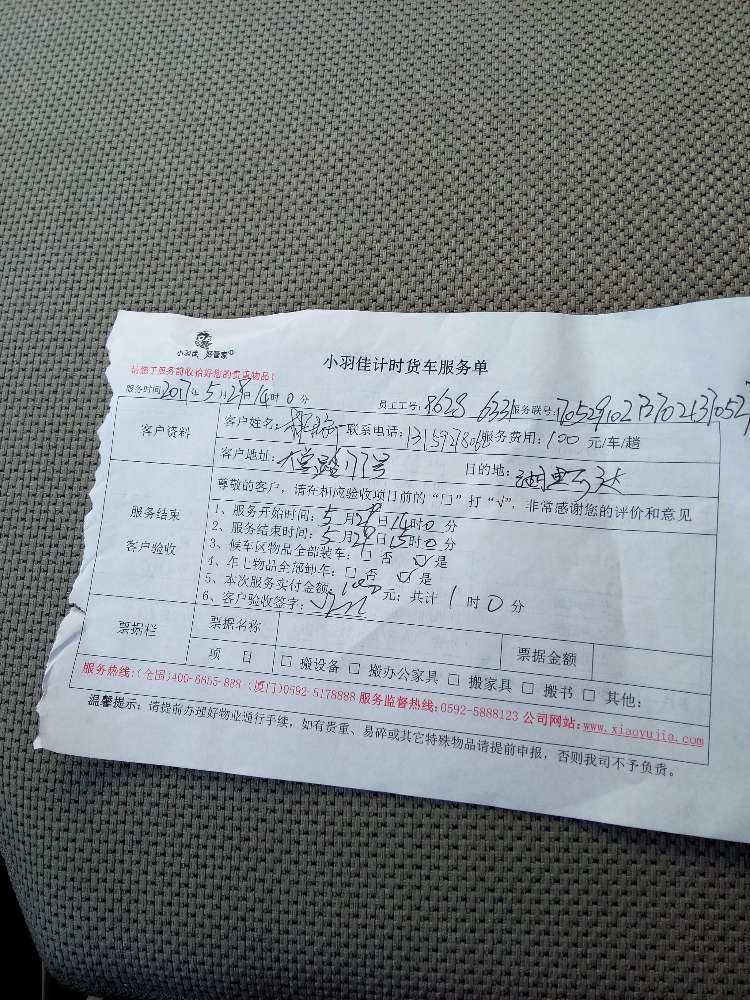 小羽佳 好管家
小羽佳计时货车服务单
请您于服务前收恰好您的贵重物品!
服务时间2017年5月29日14时0分 员工工号:8628 6331 服务联号:
客户资料 客户姓名: 联系电话: 服务费用:100元/车/趟
客户地址: 目的地:
尊敬的客户,请在相应验收项目前的“□”打“√”,非常感谢您的评价和意见
服务结束 客户验收
1、服务开始时间:5月29日14时0分
2、服务结束时间:5月29日15时0分
3、候车区物品全部装车:□否 ☑是
4、车上物品全部卸车:□否 ☑是
5、本次服务实付金额:100元;共计1时0分
6、客户验收签字:
票据栏 票据名称 票据金额
项 目 □搬设备 □搬办公家具 □搬家具 □搬书 □其他:
服务热线:(全国)400-6655-888 (厦门)0592-5178888 服务监督热线:0592-5888123 公司网站:www.xiaoyujia.com
温馨提示:请提前办理好物业通行手续,如有贵重、易碎或其它特殊物品请提前申报,否则我司不予负责。